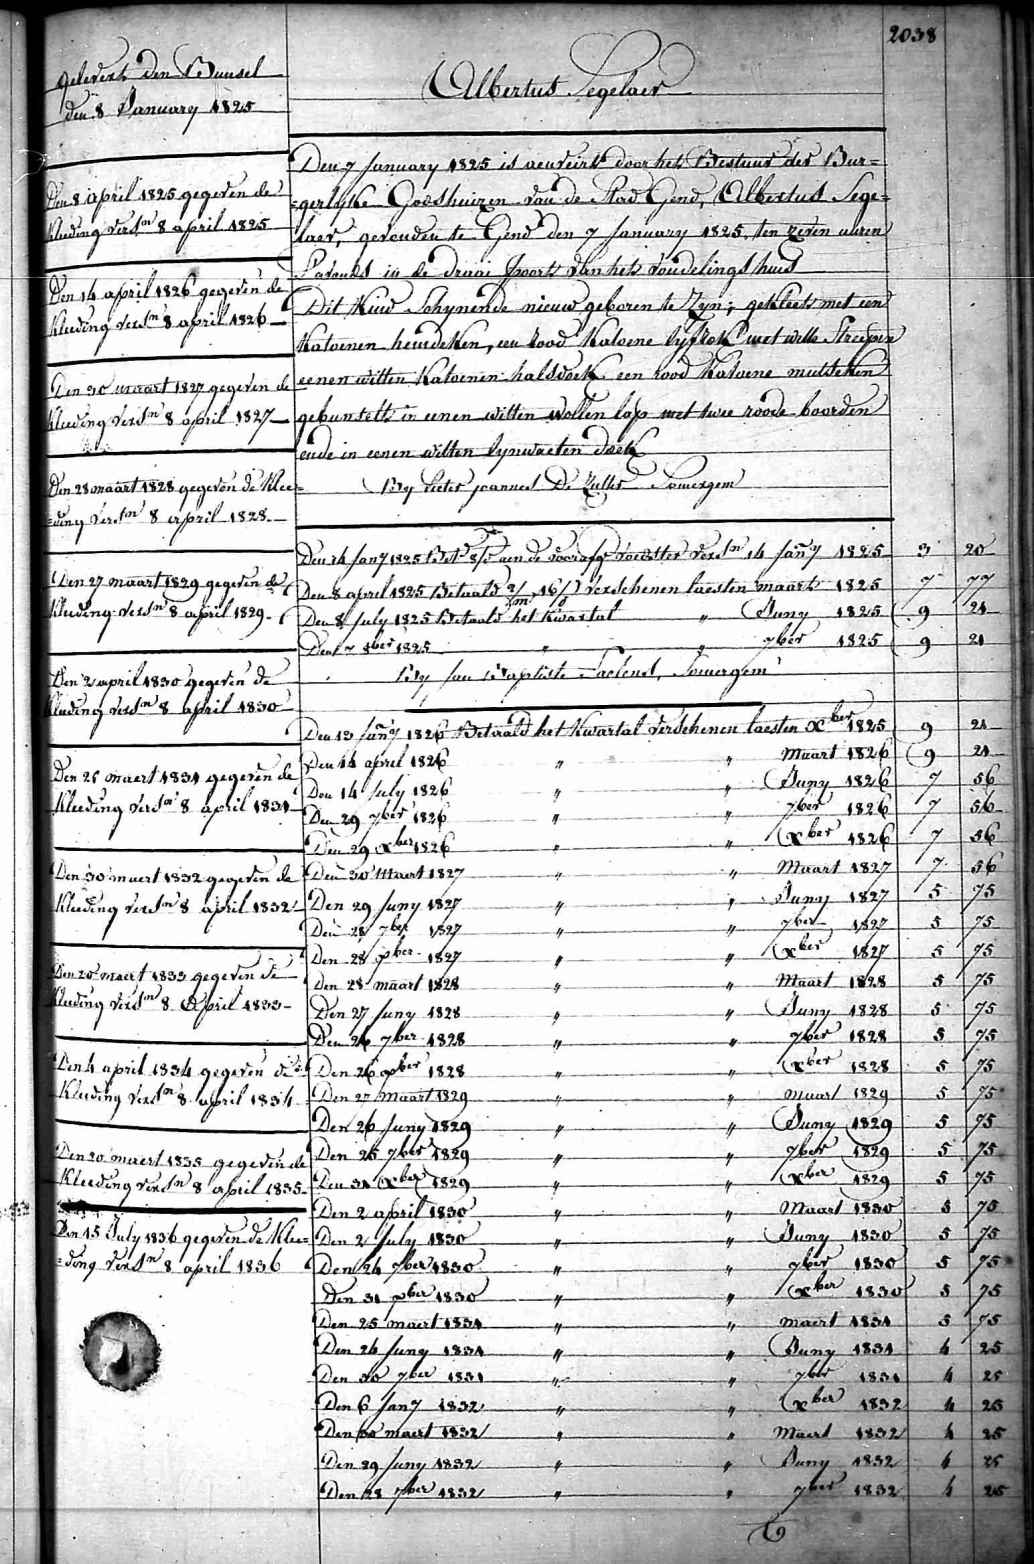 2038
gelevert den Bunsel
den 8 January 1825
Den 8 april 1825 gegeven de
kleeding versn 8 april 1825
Den 14 april 1826 gegeven de
kleeding versn 8 april 1826
Den 30 maart 1827 gegeven de
kleeding versn 8 april 1827
Den 28 maart 1828 gegeven de klee=
=ding versn 8 april 1828
Den 27 maart 1829 gegeven de
kleeding versn 8 april 1829
Den 2 april 1830 gegeven de
kleeding versn 8 april 1830
Den 25 maert 1831 gegeven de
kleeding versn 8 april 1831
Den 30 maert 1832 gegeven de
kleeding versn 8 april 1832
Den 20 maert 1833 gegeven de
kleeding versn 8 April 1833
Den 4 april 1834 gegeven de
kleeding versn 8 april 1834
Den 20 maert 1835 gegeven de
kleeding versn 8 april 1835
Den 15 July 1836 gegeven de klee=
=ding versn 8 april 1836
Albertus Segelaer
Den 7 January 1825 is door het Bestuur der Bur=
=gerlyke Godshuizen van de Stad Gend, Albertus Sege=
laer, gevonden te Gend den 7 January 1825, ten zeven uuren
s'avonds in de draai poort van het vondelings huis
Dit kind schynende nieuw geboren te zyn; gekleet met een
katoenen hemdeken, een rood katoene lyfrok met witte Streepen
eenen witten katoenen halsdoek een rood katoene mutsken
gebunselt in eenen witten wollen lap met twee roode boorden
ende in eenen witten lynwaeten doek
By Pieter joannes De Somergem
Den 14 Jany 1825 Bet aen de voorafge voedster versn 14 Jany 1825 3 20
Den 8 april 1825 Betaald verschenen laesten maart 1825 7 77
Den 8 July 1825 Betaald het kwartal " Juny 1825 9 21
Den 7 8ber 1825 " " 7ber 1825 9 21
By Jan Baptiste Somergem
Den 13 Jany 1826 Betaald het kwartal verschenen laesten Xber 1825 9 21
Den 14 april 1826 " " Maart 1826 9 21
Den 14 July 1826 " " Juny 1826 7 56
Den 29 7ber 1826 " " 7ber 1826 7 56
Den 29 Xber 1826 " " Xber 1826 7 56
Den 30 Maart 1827 " " Maart 1827 7 56
Den 29 Juny 1827 " " Juny 1827 5 75
Den 28 7ber 1827 " " 7ber 1827 5 75
Den 28 Xber 1827 " " Xber 1827 5 75
Den 28 maart 1828 " " Maart 1828 5 75
Den 27 Juny 1828 " " Juny 1828 5 75
Den 26 7ber 1828 " " 7ber 1828 5 75
Den 26 Xber 1828 " " Xber 1828 5 75
Den 27 Maart 1829 " " maart 1829 5 75
Den 26 Juny 1829 " " Juny 1829 5 75
Den 25 7ber 1829 " " 7ber 1829 5 75
Den 31 Xber 1829 " " Xber 1829 5 75
Den 2 april 1830 " " Maart 1830 5 75
Den 2 July 1830 " " Juny 1830 5 75
Den 24 7ber 1830 " " 7ber 1830 5 75
Den 31 Xber 1830 " " Xber 1830 5 75
Den 25 maert 1831 " " maert 1831 5 75
Den 24 Juny 1831 " " Juny 1831 4 25
Den 30 7ber 1831 " " 7ber 1831 4 25
Den 6 Jany 1832 " " Xber 1832 4 25
Den 30 maert 1832 " " Maert 1832 4 25
Den 29 Juny 1832 " " Juny 1832 4 25
Den 28 7ber 1832 " " 7ber 1832 4 25